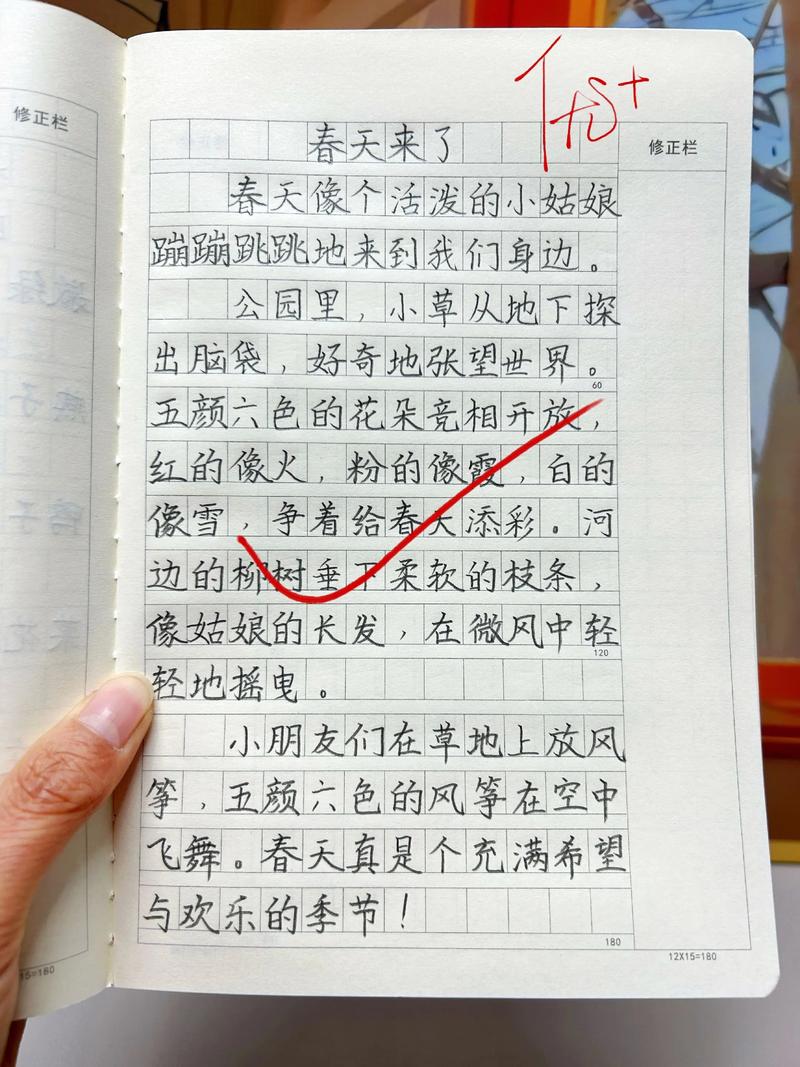 修正栏
优+
春天来了
修正栏
春天像个活泼的小姑娘
蹦蹦跳跳地来到我们身边。
公园里，小草从地下探
出脑袋，好奇地张望世界。
60
五颜六色的花朵竞相开放，
红的像火，粉的像霞，白的
像雪，争着给春天添彩。河
边的柳树垂下柔软的枝条，
像姑娘的长发，在微风中轻
120
轻地摇曳。
小朋友们在草地上放风
筝，五颜六色的风筝在空中
飞舞。春天真是个充满希望
与欢乐的季节！
180
12X15=180
15=180